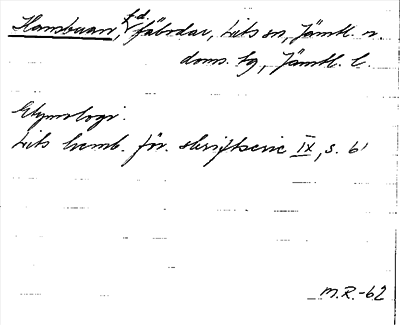 Hamsbuan, f.d. fäbodar, Lits sn, Jämtl. n.
doms. fg, Jämtl. l.
Etymologi.
Lits hemb. för. skriftserie IX, s. 61
M.R.-62